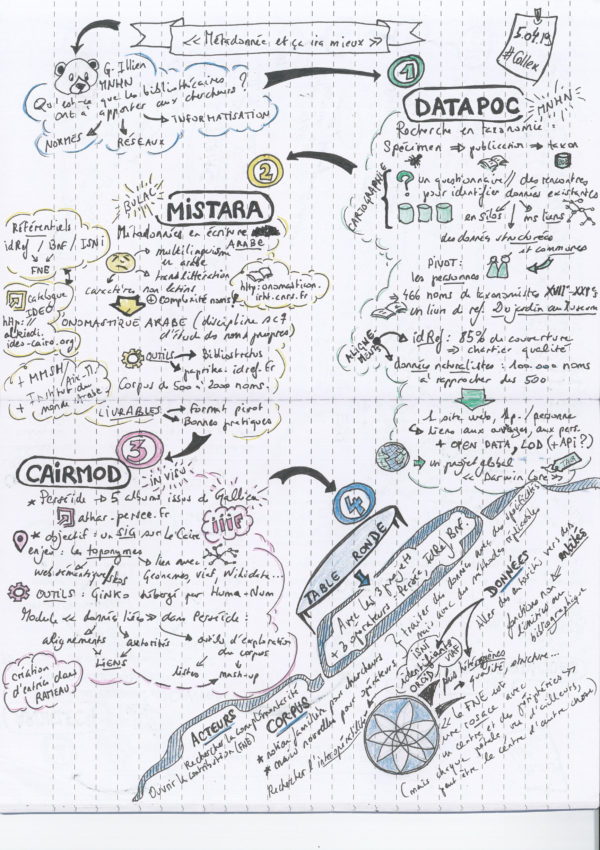 « Métadonnée et ça ira mieux »
5.04.19
#Collex
G. Illien
MNHN
Qu'est-ce que les bibliothécaires
ont à apporter aux chercheurs ?
NORMES
RÉSEAUX
INFORMATISATION
1
DATAPOC
MNHN
Recherche en taxonomie :
Spécimen → publication → taxon
CARTOGRAPHIE
? un questionnaire // des rencontres
pour identifier données existantes
en silos / ms liens
des données structurées
et communes
PIVOT :
les personnes
→ 466 noms de taxonomistes XVIIe-XXIe s
un lien du ref. Du jardin au Museum
ALIGNEMENT
idRef : 85% de couverture
→ chantier qualité
données naturalistes : 100 000 noms
à rapprocher des 500
1 site web, 1p. / personne
→ liens aux ouvrages, aux pers.
+ OPEN DATA, LOD (+ API ?)
→ un projet global
« Darwin Core »
2
BULAC
MISTARA
Métadonnées en écriture
ARABE
Référentiels
idRef / BnF / ISNI
FNE
multilinguisme
en arabe
translittération
caractères non latins
+ complexité noms ?
http:onomasticon.
irht.cnrs.fr
catalogue
IDEO
http://
alkindi.
ideo-cairo.org
ONOMASTIQUE ARABE (discipline
d'étude des noms propres)
OUTILS → Bibliostratus
→ paprika.idref.fr
Corpus de 500 à 2000 noms :
+ MMSH /
Aix-M.
+ Institut du
monde arabe
LIVRABLES → Format pivot
→ Bonnes pratiques
3
CAIRMOD
InVisu
* Perséide → 5 albums issus de Gallica
athar.persee.fr
iiif
* objectif : un SIG sur le Caire
enjeu : les toponymes
→ lien avec
Geonames, Viaf, Wikidata...
OUTILS : Ginko hébergé par Huma-Num
Module « Données liées » dans Persée :
alignements
autorités
outils d'exploration
du corpus
LIENS
listes
mash-up
création
d'entrées dans
RAMEAU
4
TABLE RONDE
Avec les 3 projets
+ 3 opérateurs : Persée, IdRef, BnF.
ACTEURS
Rechercher la complémentarité
Ouvrir la contribution (FNE)
CORPUS
* notion familière pour chercheurs
* mais nouvelle pour opérateurs
Rechercher l'interopérabilité
DONNÉES
Travailler des données avec des spécificités
mais avec des méthodes réplicables
identifiants
ISNI
ORCID
VIAF
Aller des autorités vers des
entités
fonctions non
limitées au
bibliographique
plus hétérogènes
→ qualité, structure...
« le FNE est
une rosace avec
un centre et des périphéries »
(mais chaque pétale peut-être le centre d'autre chose)